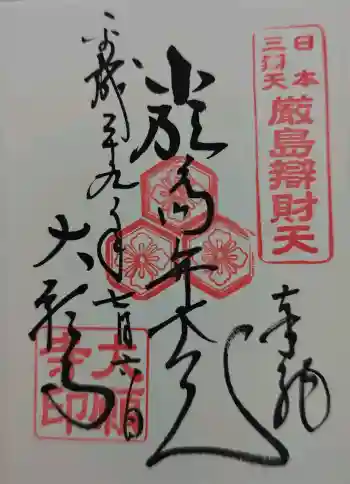 日本
三弁天
厳島辯財天
奉拝
厳島弁才天
平成二十九年七月六日
大願寺
大願寺印